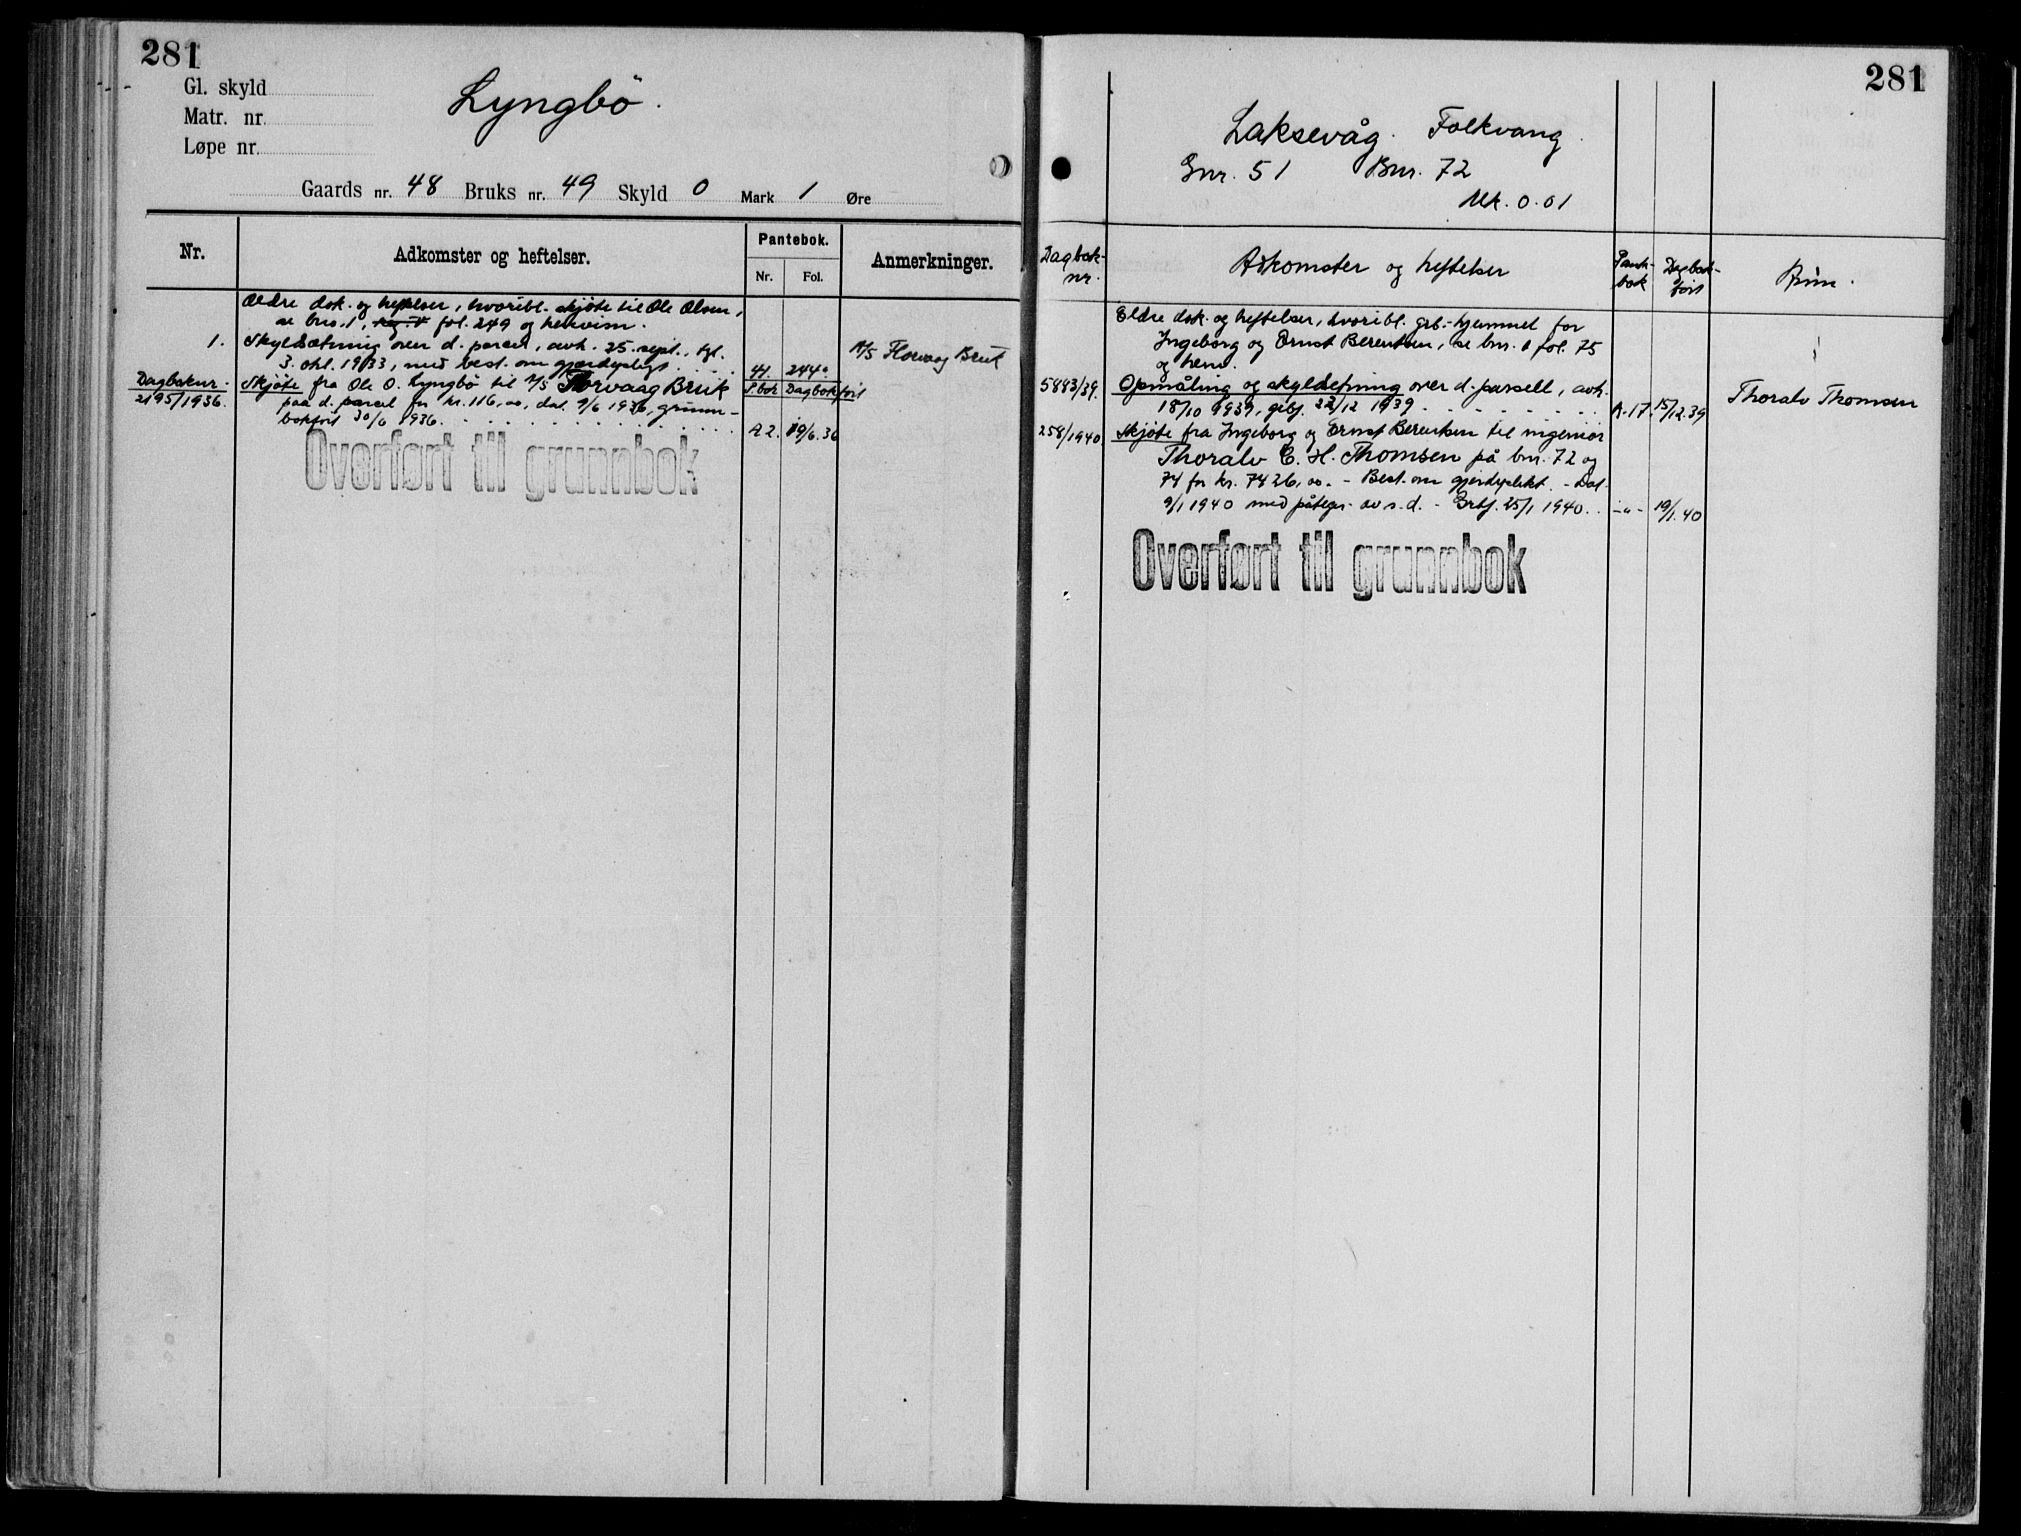 281
Gl. skyld
Matr. nr.
Løpe nr.
Lyngbö.
Gaards nr. 48 Bruks nr. 49 Skyld 0 Mark 1 Øre
Nr.
Adkomster og heftelser.
Pantebok.
Nr. Fol.
Anmerkninger.
Ældre dok. og heftelser, hvoribl. skjøte til Ole Olsen,
se bno. 1, fol. 249 og henvisn.
1. Skyldsætning over d. parcel, avh. 25. sept., tgl.
3. okt. 1933, med best. om gjerdepligt . . . 41. 244
A/S Florvaag Bruk
Dagboknr. 2195/1936. Skjøte fra Ole O. Lyngbö til A/S Florvaag Bruk P.bok Dagbokført
paa d. parcel for kr. 116,00, dat. 9/6 1936, grunn-
bokført 30/6 1936. . . . A 2. 19/6.36
Overført til grunnbok
281
Laksevåg. Folkvang.
Gnr. 51 Bnr. 72
Mk. 0.01
Dagbok-
nr.
Adkomster og heftelser
Pant-
bok
Dagbok-
ført
Anm.
Eldre dok. og heftelser, hvoribl. grb.-hjemmel for
Ingeborg og Ernst Berentsen, se bnr. 1 fol. 75
og henv.
5883/39. Opmåling og skylddeling over d. parsell, avh.
18/10 1939, grbf. 22/12 1939 . . . A.17. 15/12.39
Thoralv Thomsen
258/1940 Skjøte fra Ingeborg og Ernst Berentsen til ingeniør
Thoralv C. H. Thomsen på bnr. 72 og
74 for kr. 7426,00. - Best. om gjerdeplikt. - Dat.
9/1 1940 med påtegn. av s.d. - Grbf. 25/1 1940. . -"- 19/1.40
Overført til grunnbok